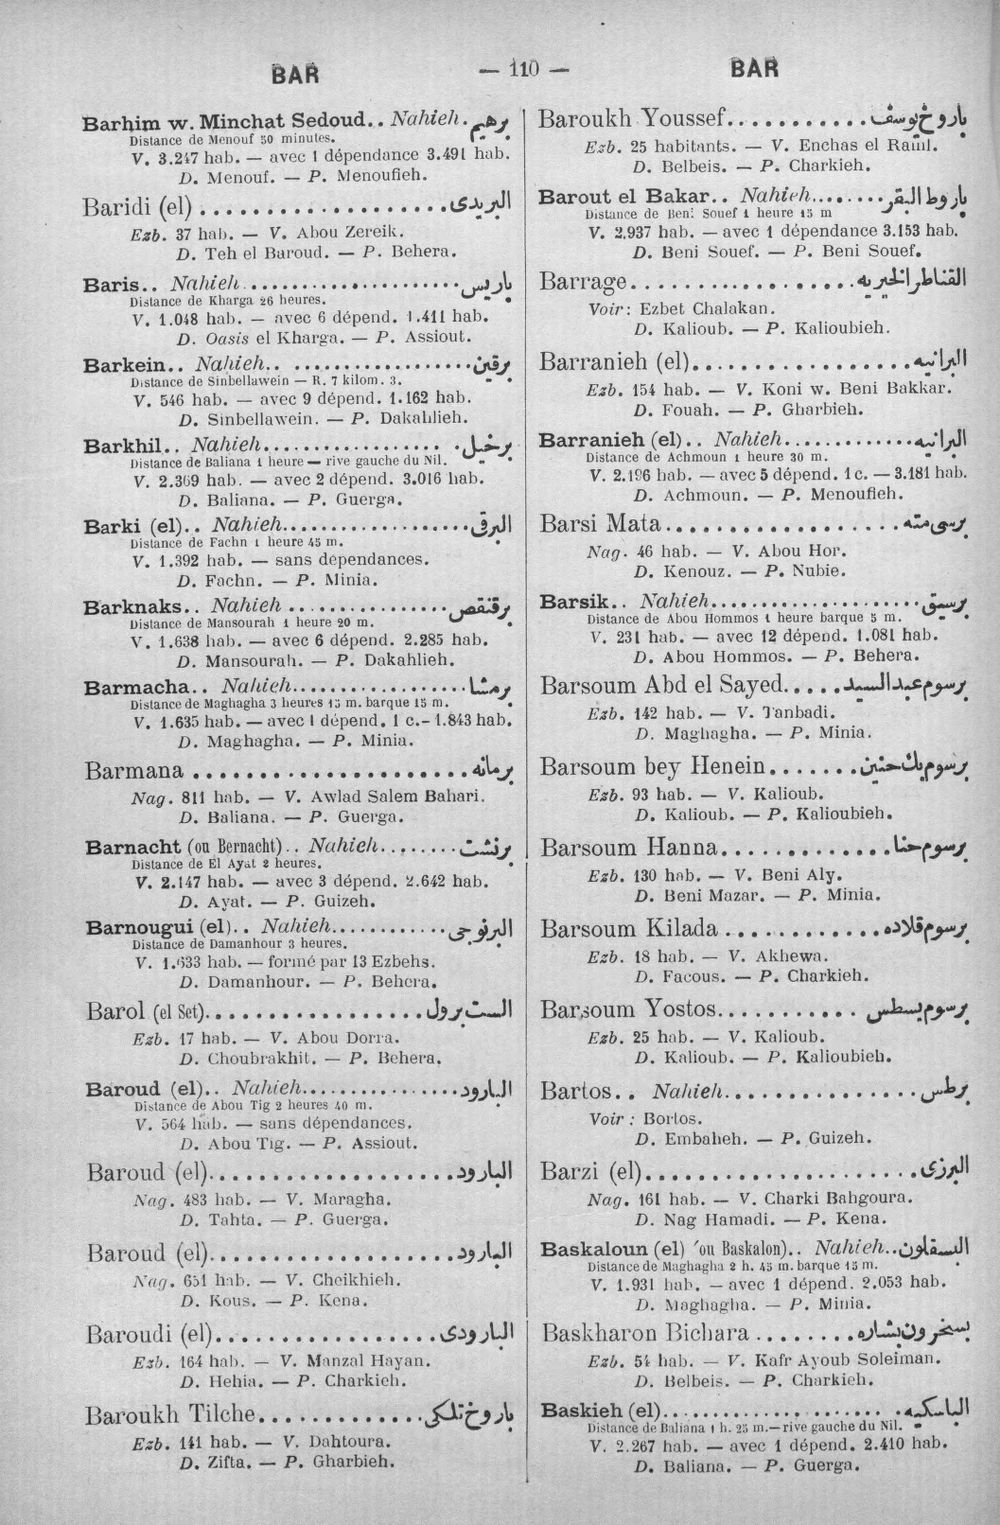 BAR — 110 — BAR
Barhim w. Minchat Sedoud.. Nahieh. برهيم
Distance de Menouf 50 minutes.
V. 3.247 hab. — avec 1 dépendance 3.491 hab.
D. Menouf. — P. Menoufieh.
Baridi (el) .................... البريدى
Ezb. 37 hab. — V. Abou Zereik.
D. Teh el Baroud. — P. Behera.
Baris.. Nahieh .................... باريس
Distance de Kharga 26 heures.
V. 1.048 hab. — avec 6 dépend. 1.411 hab.
D. Oasis el Kharga. — P. Assiout.
Barkein.. Nahieh.. .................. برقين
Distance de Sinbellawein — R. 7 kilom. 3.
V. 546 hab. — avec 9 dépend. 1.162 hab.
D. Sinbellawein. — P. Dakahlieh.
Barkhil.. Nahieh.................... برخيل
Distance de Baliana 1 heure — rive gauche du Nil.
V. 2.369 hab. — avec 2 dépend. 3.016 hab.
D. Baliana. — P. Guerga.
Barki (el).. Nahieh.................. البرقى
Distance de Fachn 1 heure 45 m.
V. 1.392 hab. — sans dépendances.
D. Fachn. — P. Minia.
Barknaks.. Nahieh ................ برقنقص
Distance de Mansourah 1 heure 20 m.
V. 1.638 hab. — avec 6 dépend. 2.285 hab.
D. Mansourah. — P. Dakahlieh.
Barmacha.. Nahieh.................. برمشا
Distance de Maghagha 3 heures 15 m. barque 15 m.
V. 1.635 hab. — avec 1 dépend. 1 c.- 1.843 hab.
D. Maghagha. — P. Minia.
Barmana ........................ برمانه
Nag. 811 hab. — V. Awlad Salem Bahari.
D. Baliana. — P. Guerga.
Barnacht (ou Bernacht).. Nahieh........ برنشت
Distance de El Ayat 2 heures.
V. 2.147 hab. — avec 3 dépend. 2.642 hab.
D. Ayat. — P. Guizeh.
Barnougui (el).. Nahieh............ البرنوجى
Distance de Damanhour 3 heures.
V. 1.633 hab. — formé par 13 Ezbehs.
D. Damanhour. — P. Behera.
Barol (el Set).................... الست برول
Ezb. 17 hab. — V. Abou Dorra.
D. Choubrakhit. — P. Behera.
Baroud (el).. Nahieh............... البارود
Distance de Abou Tig 2 heures 40 m.
V. 564 hab. — sans dépendances.
D. Abou Tig. — P. Assiout.
Baroud (el)...................... البارود
Nag. 483 hab. — V. Maragha.
D. Tahta. — P. Guerga.
Baroud (el)...................... البارود
Nag. 651 hab. — V. Cheikhieh.
D. Kous. — P. Kena.
Baroudi (el)..................... البارودى
Ezb. 164 hab. — V. Manzal Hayan.
D. Hehia. — P. Charkieh.
Baroukh Tilche.............. باروخ تلكى
Ezb. 141 hab. — V. Dahtoura.
D. Zifta. — P. Gharbieh.
Baroukh Youssef........... باروخ يوسف
Ezb. 25 habitants. — V. Enchas el Raml.
D. Belbeis. — P. Charkieh.
Barout el Bakar.. Nahieh........ باروط البقر
Distance de Beni Souef 1 heure 15 m
V. 2.937 hab. — avec 1 dépendance 3.153 hab.
D. Beni Souef. — P. Beni Souef.
Barrage.................. القناطر الخيريه
Voir: Ezbet Chalakan.
D. Kalioub. — P. Kalioubieh.
Barranieh (el)................... البرانيه
Ezb. 154 hab. — V. Koni w. Beni Bakkar.
D. Fouah. — P. Gharbieh.
Barranieh (el).. Nahieh............ البرانيه
Distance de Achmoun 1 heure 30 m.
V. 2.196 hab. — avec 5 dépend. 1 c. — 3.181 hab.
D. Achmoun. — P. Menoufieh.
Barsi Mata.................... برسى مته
Nag. 46 hab. — V. Abou Hor.
D. Kenouz. — P. Nubie.
Barsik.. Nahieh..................... برسيق
Distance de Abou Hommos 1 heure barque 5 m.
V. 231 hab. — avec 12 dépend. 1.081 hab.
D. Abou Hommos. — P. Behera.
Barsoum Abd el Sayed..... برسوم عبد السيد
Ezb. 142 hab. — V. Tanbadi.
D. Maghagha. — P. Minia.
Barsoum bey Henein....... برسوم بك حنين
Ezb. 93 hab. — V. Kalioub.
D. Kalioub. — P. Kalioubieh.
Barsoum Hanna............. برسوم حنا
Ezb. 130 hab. — V. Beni Aly.
D. Beni Mazar. — P. Minia.
Barsoum Kilada ............ برسوم قلاده
Ezb. 18 hab. — V. Akhewa.
D. Facous. — P. Charkieh.
Barsoum Yostos........... برسوم يسطس
Ezb. 25 hab. — V. Kalioub.
D. Kalioub. — P. Kalioubieh.
Bartos.. Nahieh................ برطس
Voir : Bortos.
D. Embabeh. — P. Guizeh.
Barzi (el)...................... البرزى
Nag. 161 hab. — V. Charki Bahgoura.
D. Nag Hamadi. — P. Kena.
Baskaloun (el) (ou Baskalon).. Nahieh.. السقلون
Distance de Maghagha 2 h. 45 m. barque 15 m.
V. 1.931 hab. — avec 1 dépend. 2.053 hab.
D. Maghagha. — P. Minia.
Baskharon Bichara ........ بسخرون بشاره
Ezb. 54 hab. — V. Kafr Ayoub Soleiman.
D. Belbeis. — P. Charkieh.
Baskieh (el)....................... الباسكيه
Distance de Baliana 1 h. 25 m.—rive gauche du Nil.
V. 2.267 hab. — avec 1 dépend. 2.410 hab.
D. Baliana. — P. Guerga.